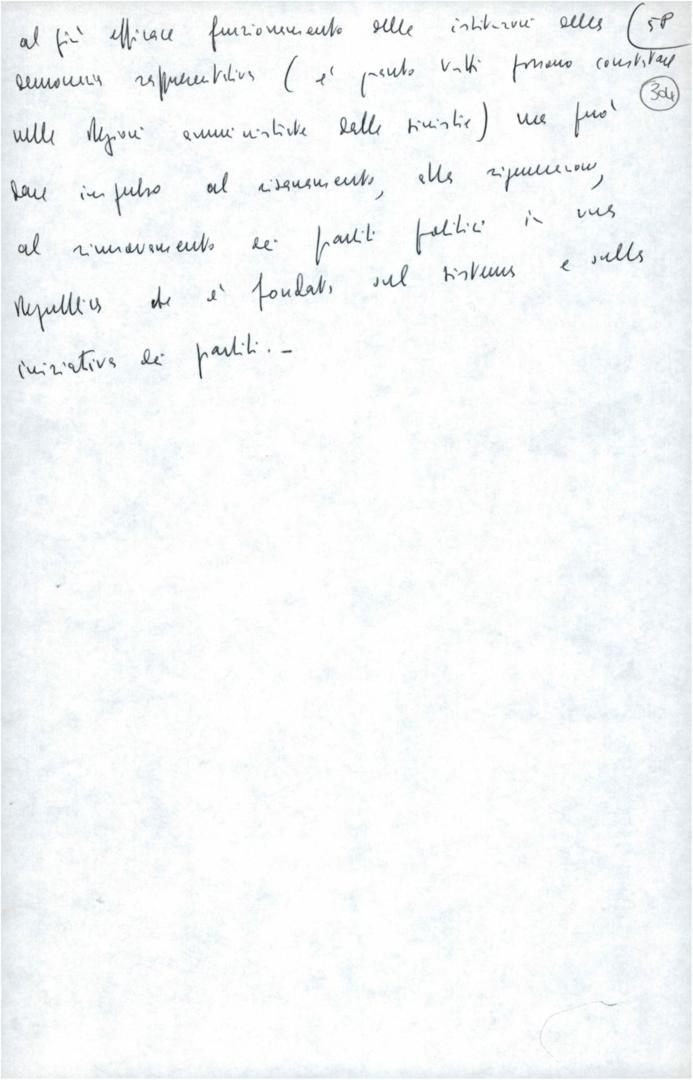 al più efficace funzionamento delle istituzioni della
58
democrazia rappresentativa (è quanto tutti possono constatare
304
nelle Regioni amministrate dalle sinistre) ma può
dare impulso al risanamento, alla
al rinnovamento dei partiti politici in una
Repubblica che è fondata sul sistema e sulla
iniziativa dei partiti. -